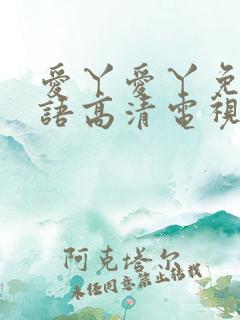 愛丫愛丫免
語高清電視
阿克塔尔
未经同意禁止转载